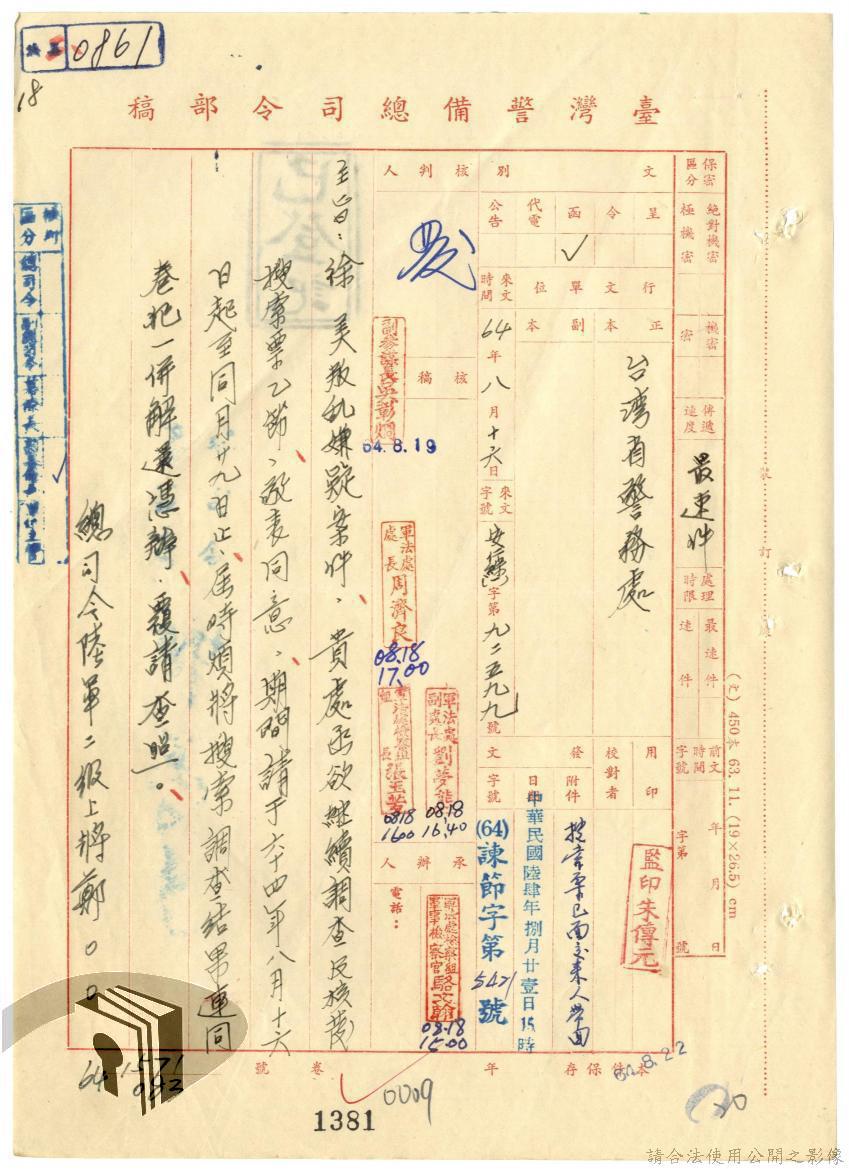 0861
18
臺灣警備總司令部稿
保密區分
絕對機密
極機密
機密
密
傳遞速度
最速件
處理時限
最速件
速件
前文時間字號
年
月
日
字第
號
文別
呈
令
函
✓
代電
公告
行文單位
正本
副本
台湾省警務處
來文時間
64年八月十六日
來文字號
字第九二五九九號
用印
監印朱傳元
校對者
發文
附件
搜索票已面交来人帶回
日期
中華民國陸肆年捌月廿壹日15時
字號
(64)諫節字第5471號
核判人
核稿
64.8.19
軍法處處長周濟良
08.18
17.00
軍法處副處長
08.18
16.40
08.18
1600
承辦人
08.18
15.00
電話：
主旨：徐 美叛乱嫌疑案件、貴處函欲继續調查及核發
搜索票乙節、敬表同意、期間請于六十四年八月十六
日起至同月廿九日止、屆時煩將搜索調查結果連同
卷犯一併解還憑辦、覆請查照。
總司令陸軍二級上將鄭○○
區分
總司令
裝
訂
(乞) 450本 63. 11. (19×26.5) cm
本件保存
年
卷
號
64.8.22
64
1571
0009
1381
20
請合法使用公開之影像